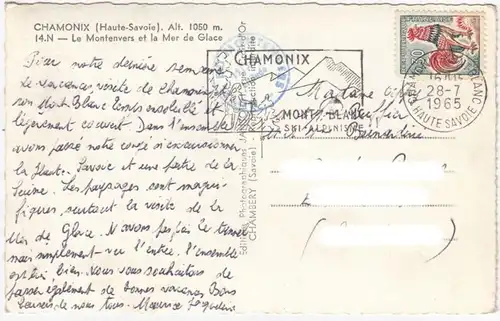 CHAMONIX (Haute-Savoie). Alt. 1050 m.
14.N — Le Montenvers et la Mer de Glace
Pour notre dernière semaine
de vacances, visite de chamonix
son Mont Blanc Ensoleillé et
légèrement couvert. Dans l'ensemble
avons passé notre congé à excursionner
la Haute-Savoie et une partie de la
Suisse. Les paysages sont magni-
fiques, surtout la visite de la
Mer de Glace. N'avons pas fait le tunnel
mais simplement vu l'entrée. l'ensemble
est très bien. Nous vous souhaitons de
passer également de bonnes vacances. Bons
baisers de nous tous. Maurice Jacqueline
Editions Photographiques
CHAMBERY (Savoie)
CHAMONIX
MONT-BLANC
SKI-ALPINISME
28-7
1965
HAUTE SAVOIE
Madame